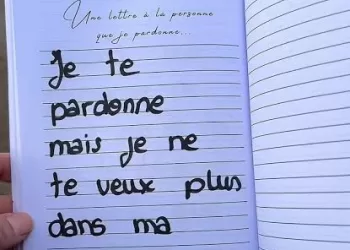 Une lettre à la personne
que je pardonne...
Je te
pardonne
mais je ne
te veux plus
dans ma